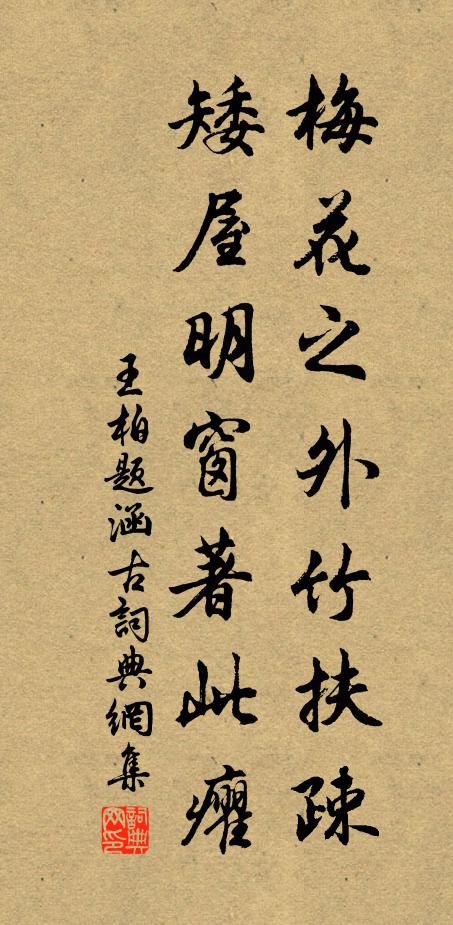 梅花之外竹扶疎
矮屋明窗著此癯
王柏題涵古詞典網集
詞典網印